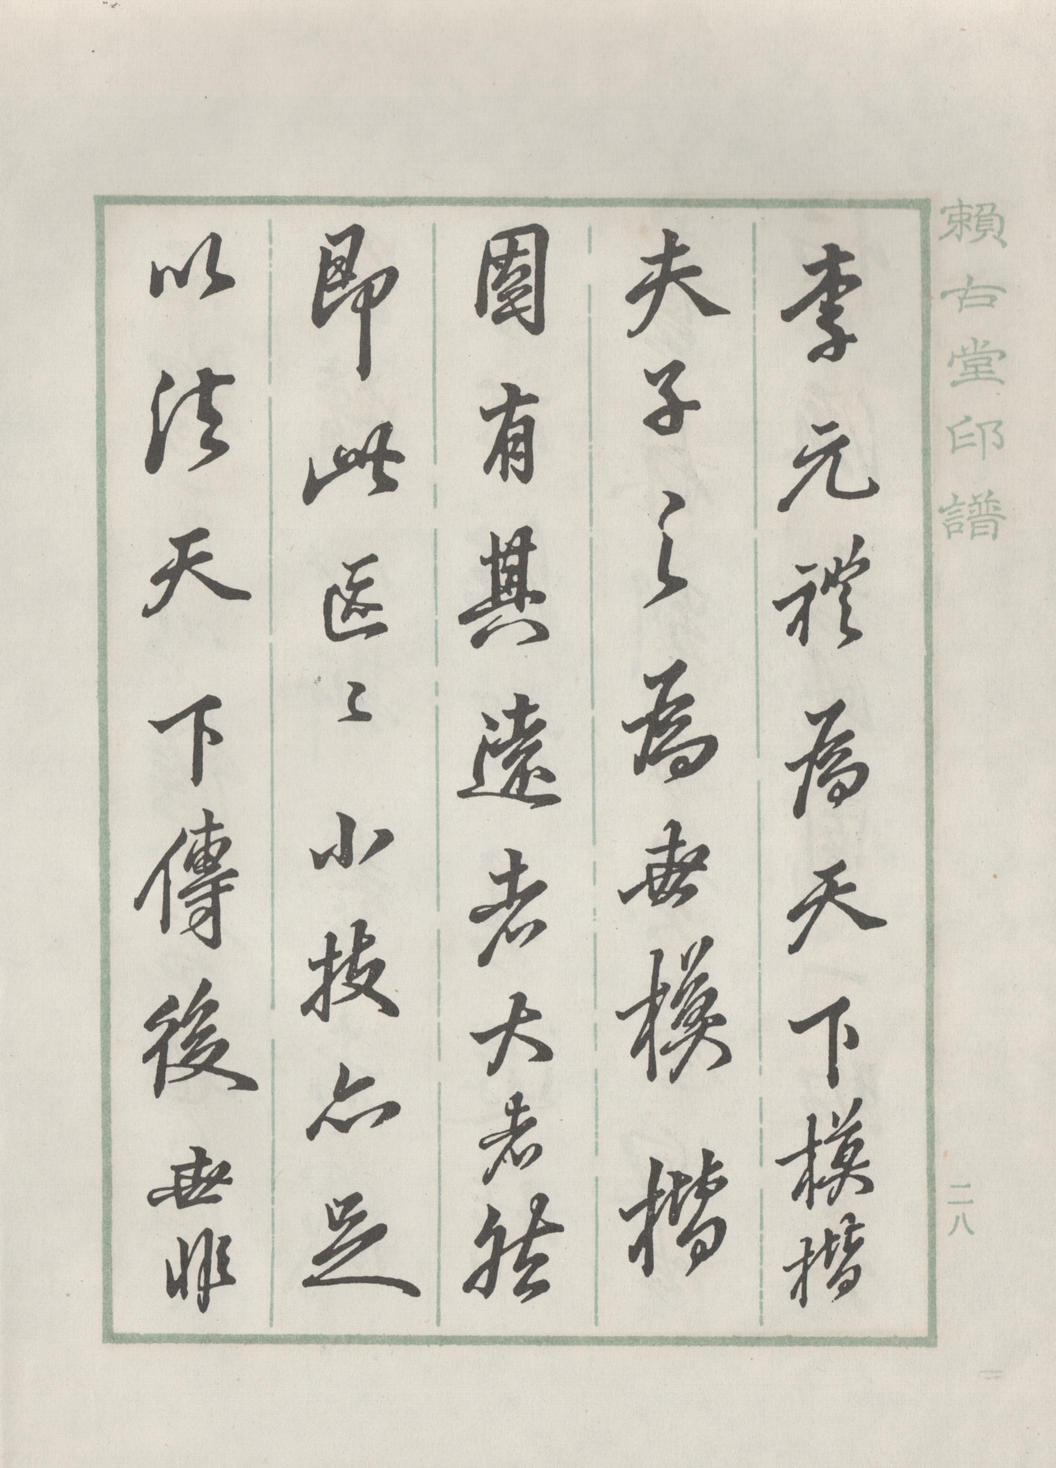 賴古堂印譜
二八
李元禮為天下模楷
夫子之為世模楷
固有其遠者大者然
即此區〻小技亦足
以法天下傳後世非